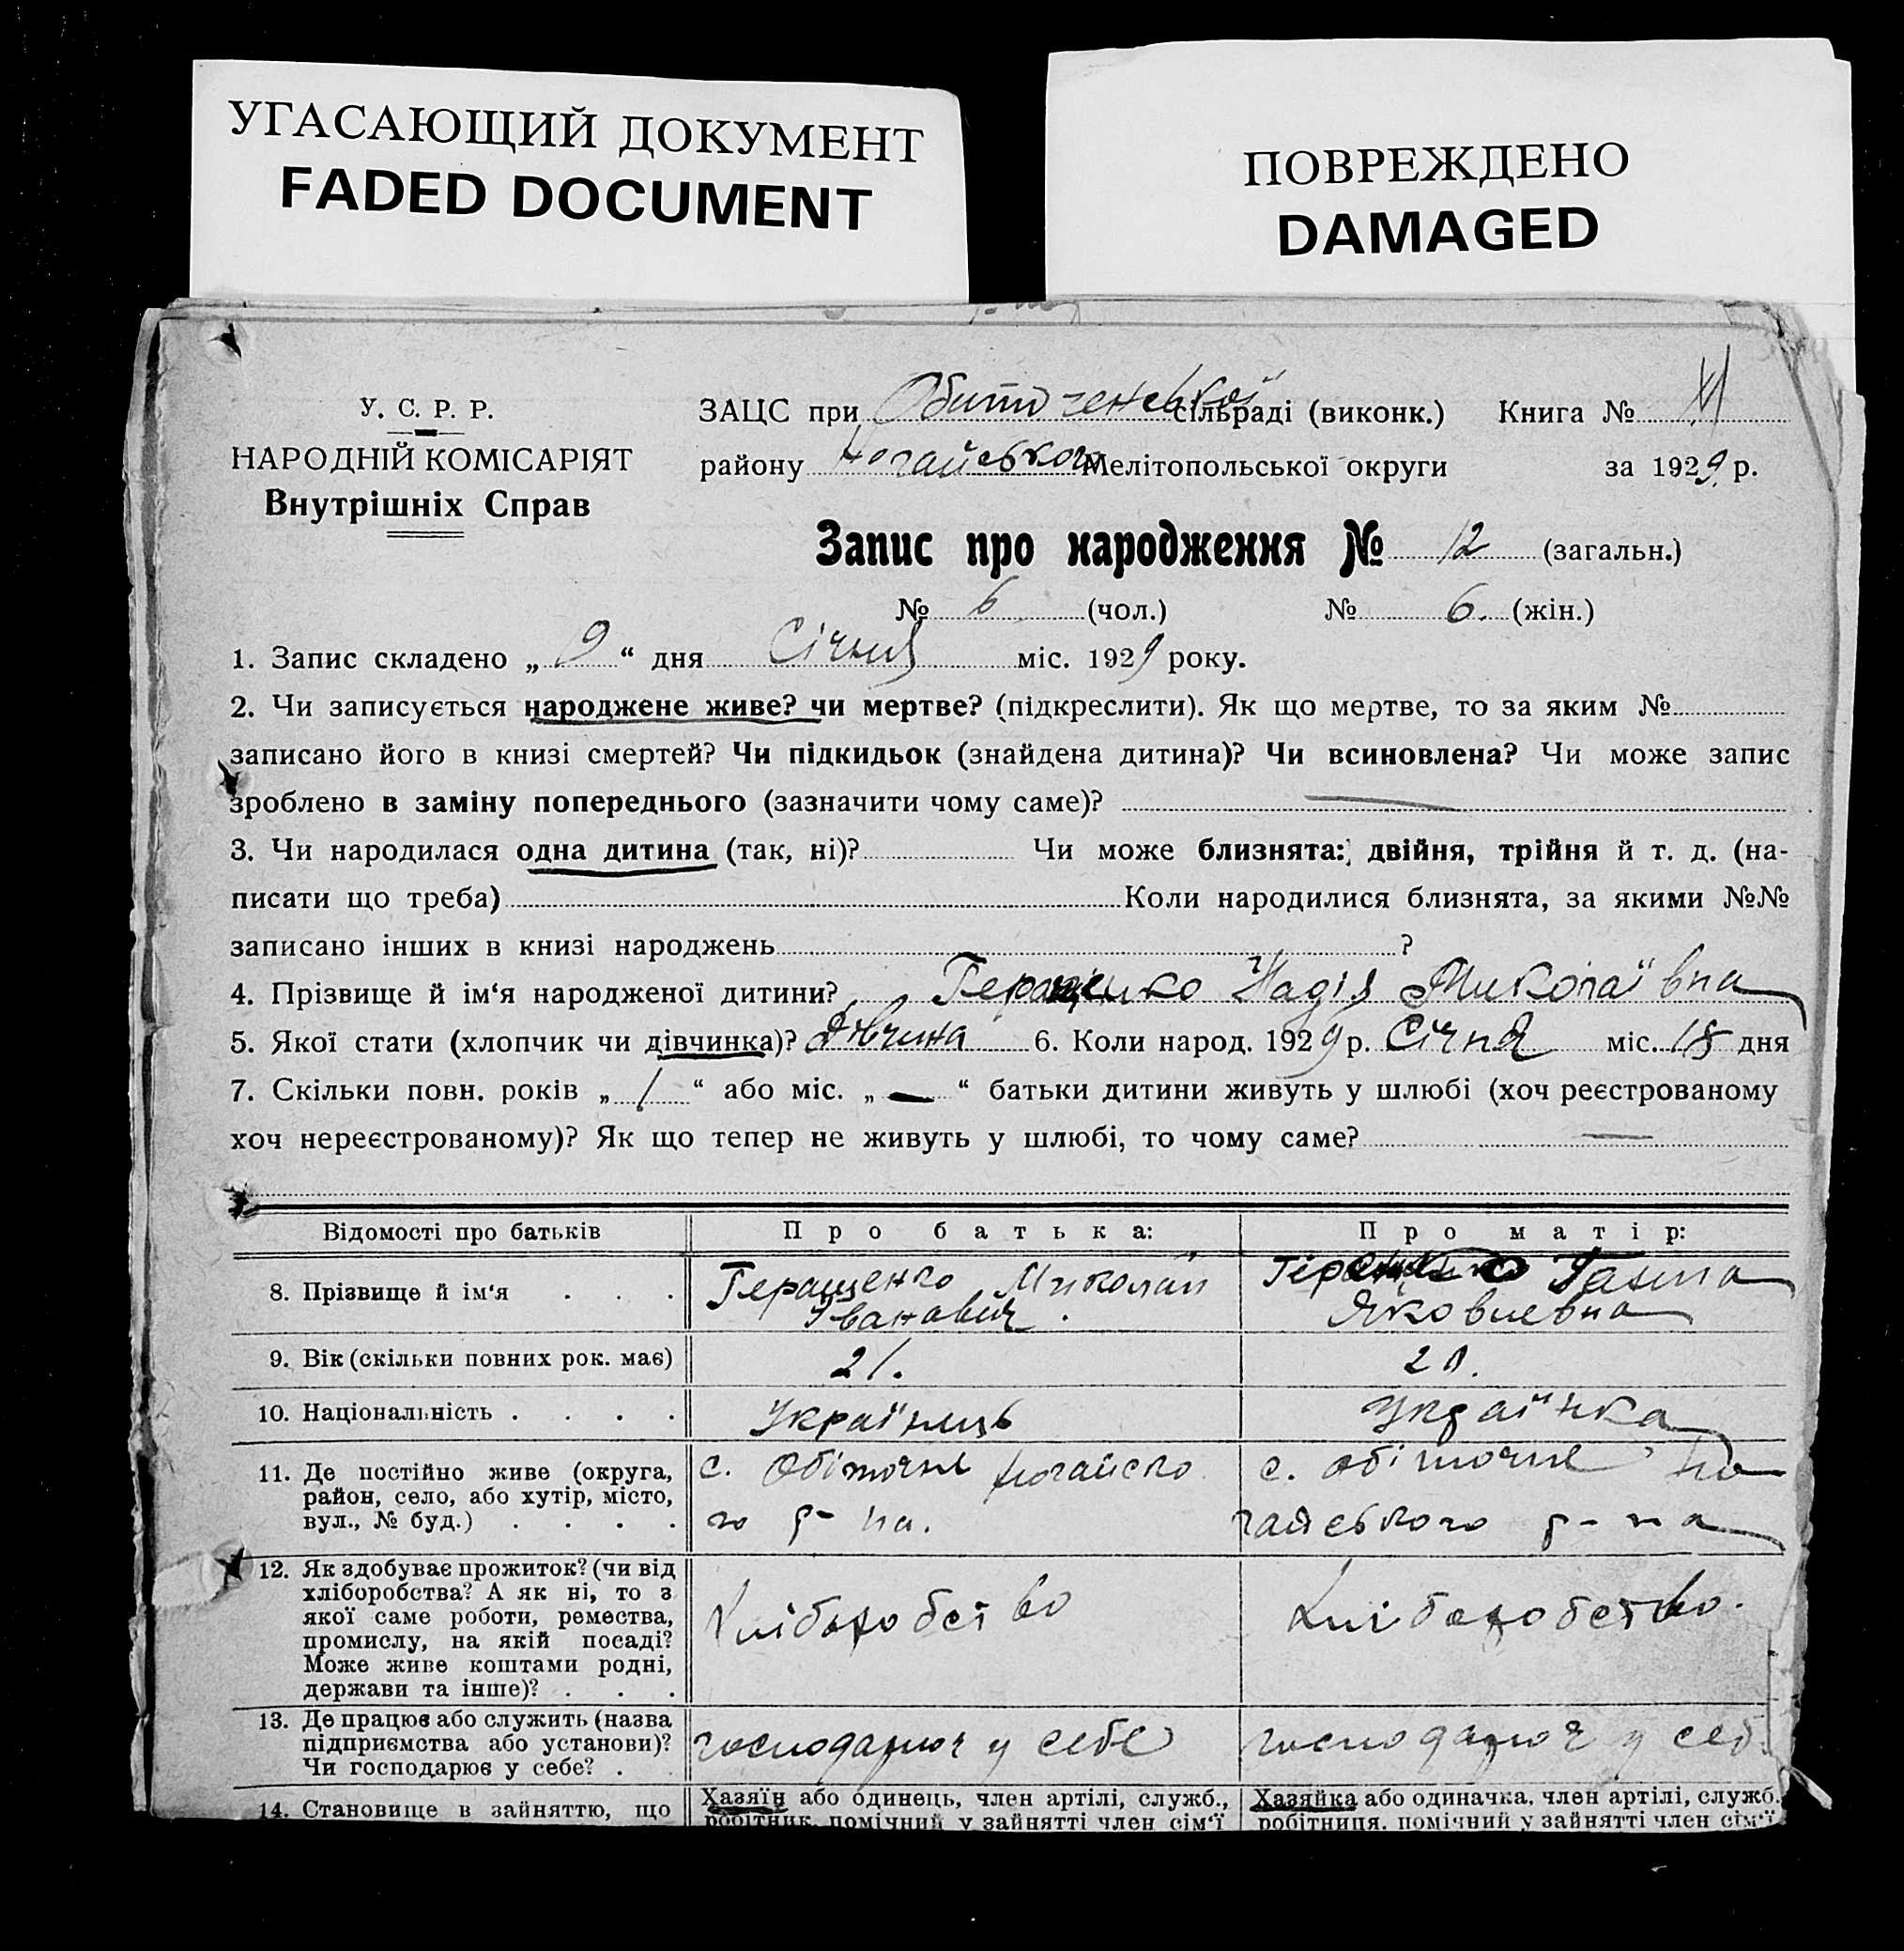 УГАСАЮЩИЙ ДОКУМЕНТ
FADED DOCUMENT
ПОВРЕЖДЕНО
DAMAGED
У. С. Р. Р.
НАРОДНІЙ КОМІСАРІЯТ
Внутрішніх Справ
ЗАЦС при Обиточенської сільраді (виконк.) Книга № VI
району Ногайського Мелітопольської округи за 1929 р.
Запис про народження № 12 (загальн.)
№ 6 (чол.) № 6. (жін.)
1. Запис складено „ 9 “ дня Січня міс. 1929 року.
2. Чи записується народжене живе? чи мертве? (підкреслити). Як що мертве, то за яким №
записано його в книзі смертей? Чи підкидьок (знайдена дитина)? Чи всиновлена? Чи може запис
зроблено в заміну попереднього (зазначити чому саме)? —
3. Чи народилася одна дитина (так, ні)? Чи може близнята: двійня, трійня й т. д. (на-
писати що треба) Коли народилися близнята, за якими №№
записано інших в книзі народжень ?
4. Прізвище й ім‘я народженої дитини? Геращенко Надія Миколаївна
5. Якої стати (хлопчик чи дівчинка)? Дівчина 6. Коли народ. 1929 р. Січня міс. 18 дня
7. Скільки повн. років „ 1 “ або міс. „ — “ батьки дитини живуть у шлюбі (хоч реєстрованому
хоч нереєстрованому)? Як що тепер не живуть у шлюбі, то чому саме? —
Відомості про батьків Про батька: Про матір:
8. Прізвище й ім‘я . . . Геращенко Миколай Геращенко Галина
Іванович. Яковлевна
9. Вік (скільки повних рок. має) 21. 20.
10. Національність . . . . Українець Українка
11. Де постійно живе (округа, с. Обіточне Ногайско с. Обіточне но
район, село, або хутір, місто,
вул., № буд.) . . . . го р-на. гайського р-на
12. Як здобуває прожиток? (чи від
хліборобства? А як ні, то з
якої саме роботи, ремества, Хліборобство Хліборобство.
промислу, на якій посаді?
Може живе коштами родні,
держави та інше)? . . .
13. Де працює або служить (назва
підприємства або установи)? господарює у себе господарює у себ
Чи господарює у себе? .
14. Становище в зайняттю, що Хазяїн або одинець, член артілі, служб., Хазяйка або одиначка, член артілі, служб.,
робітник, помічний у зайнятті член сім‘ї робітниця, помічний у зайнятті член сім‘ї